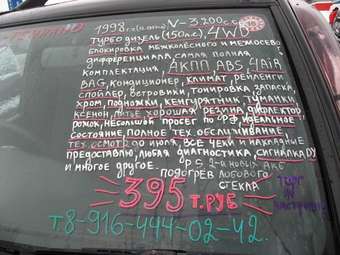 1998 г. V-3200 с.
ТУРБО ДИЗЕЛЬ (150л.с), 4WD
БЛОКИРОВКА МЕЖКОЛЁСНОГО И МЕЖОСЕВО
ДИФФЕРЕНЦИАЛА САМАЯ ПОЛНАЯ
КОМПЛЕКТАЦИЯ, АКПП ABS, 4AiR
BAG, КОНДИЦИОНЕР, КЛИМАТ, РЕЙЛЕНГИ
СПОЙЛЕР, ВЕТРОВИКИ, ТОНИРОВКА, ЗАПАСКА
ХРОМ, ПОДНОЖКИ, КЕНГУРЯТНИК, ТУМАНКИ
КСЕНОН, ЛИТЬЕ, ХОРОШАЯ РЕЗИНА,
РОЖОК, НЕБОЛЬШОЙ ПРОБЕГ ПО РФ, ИДЕАЛЬНОЕ
СОСТОЯНИЕ, ПОЛНОЕ ТЕХ. ОБСЛУЖИВАНИЕ
ТЕХ.ОСМОТР ДО ИЮЛЯ, ВСЕ ЧЕКИ И НАКЛАДНЫЕ
ПРЕДОСТАВЛЮ, ЛЮБАЯ ДИАГНОСТИКА, СИГНАЛКА ДУ
И МНОГОЕ ДРУГОЕ. 2-а НОВЫХ АКБ
ПОДОГРЕВ ЛОБОВОГО
СТЕКЛА
395 Т.РУБ
ТОРГ
Т.8-916-444-02-42.